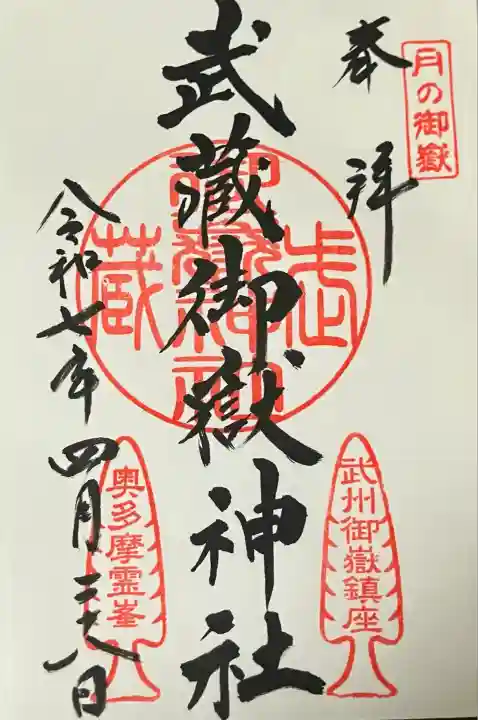 月の御嶽
奉拝
武蔵御嶽神社
武
蔵
武州御嶽鎮座
奥多摩霊峯
令和七年四月二十八日